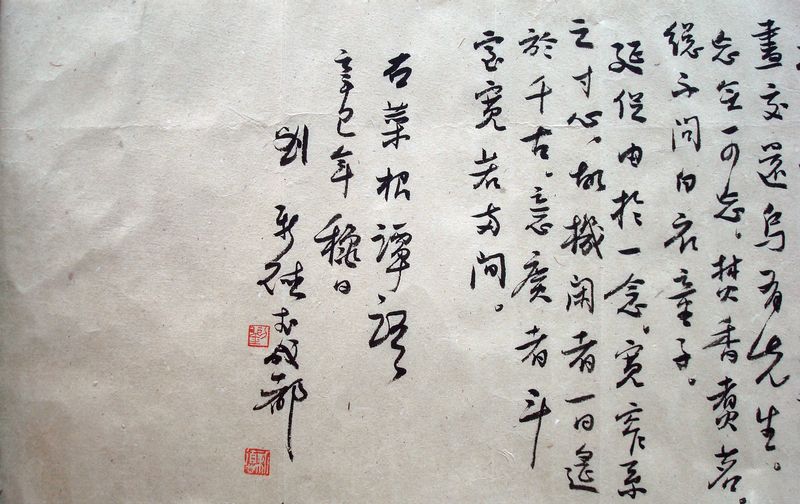 盡交還烏有先生。
忘無可忘,焚香煮茗。
總不問白衣童子。
延促由於一念。寬窄系
之寸心,故機閑者一日遙
於千古。意廣者斗
室寬若兩間。
右菜根譚語
辛巳年穐日
刘於成都